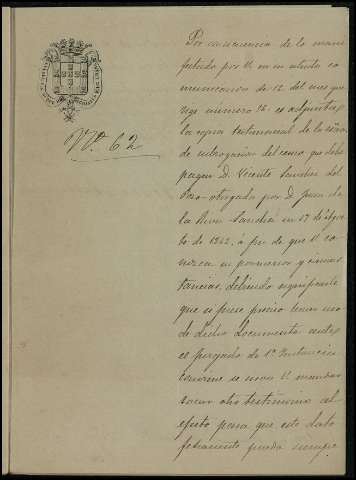 Nº. 62
Por consecuencia de lo mani
festado por V. en su atenta co
municacion de 12 del mes que
rige número 12, es adjunta
la copia testimonial de la escra.
de subrogacion del censo que debe
pagar D. Vicente Sanchez del
Pozo otorgada por D. Juan de
la Riva en 17 de Agos
to de 1862, á fin de que V. co
nozca su pormenor y circuns
tancias, debiendo significarle
que si fuese preciso tener uso
de dicho documento ante
el juzgado de 1ª. Instancia
conviene se sirva V. mandar
sacar otro testimonio al
efecto para que este
pueda siempre